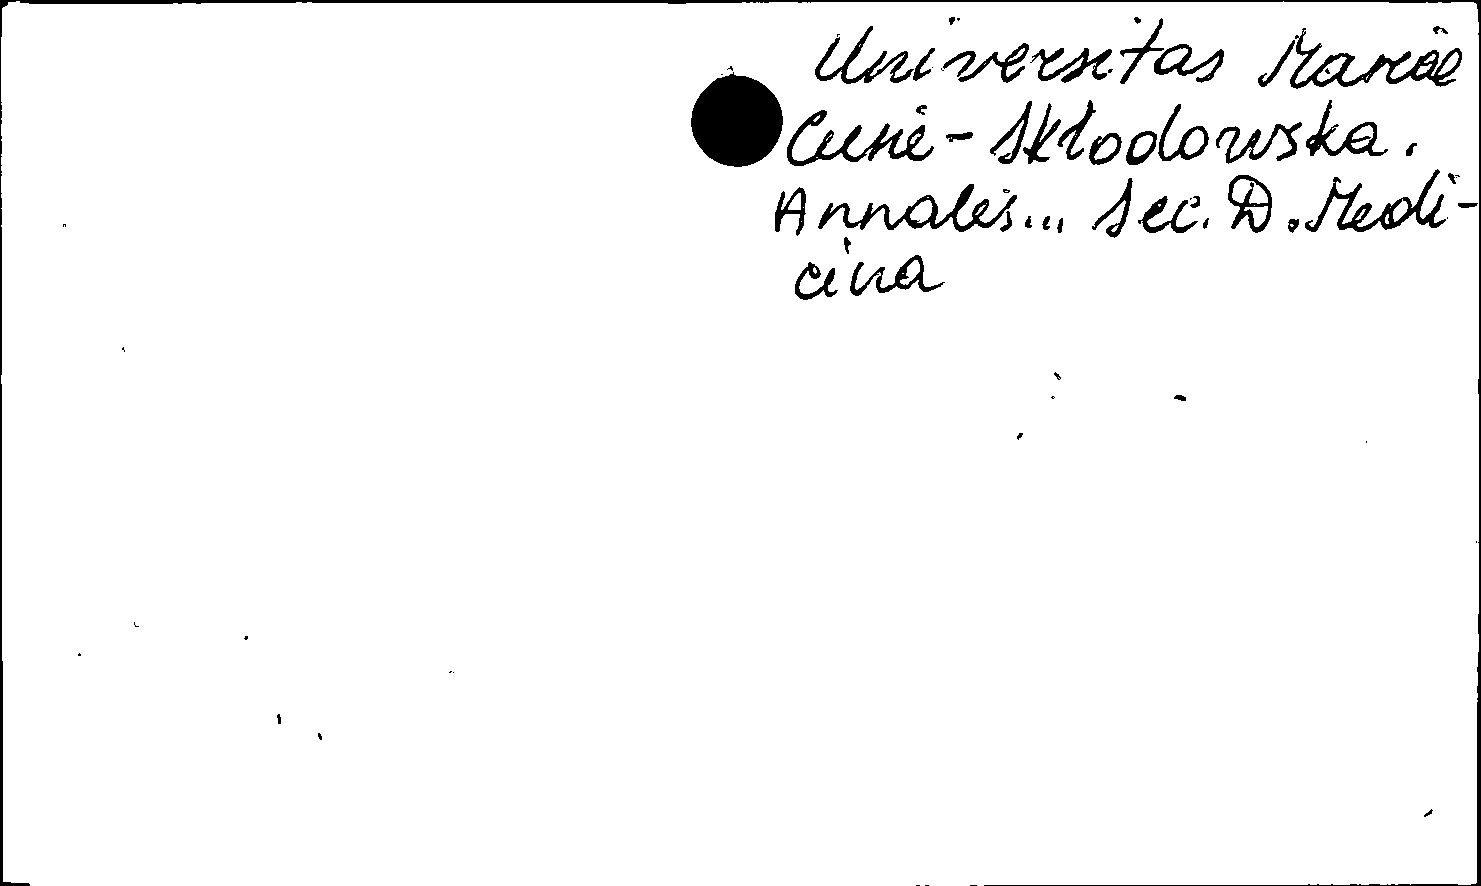 Universitas Mariae
Curie-Skłodowska.
Annales... Sec. D. Medi-
cina